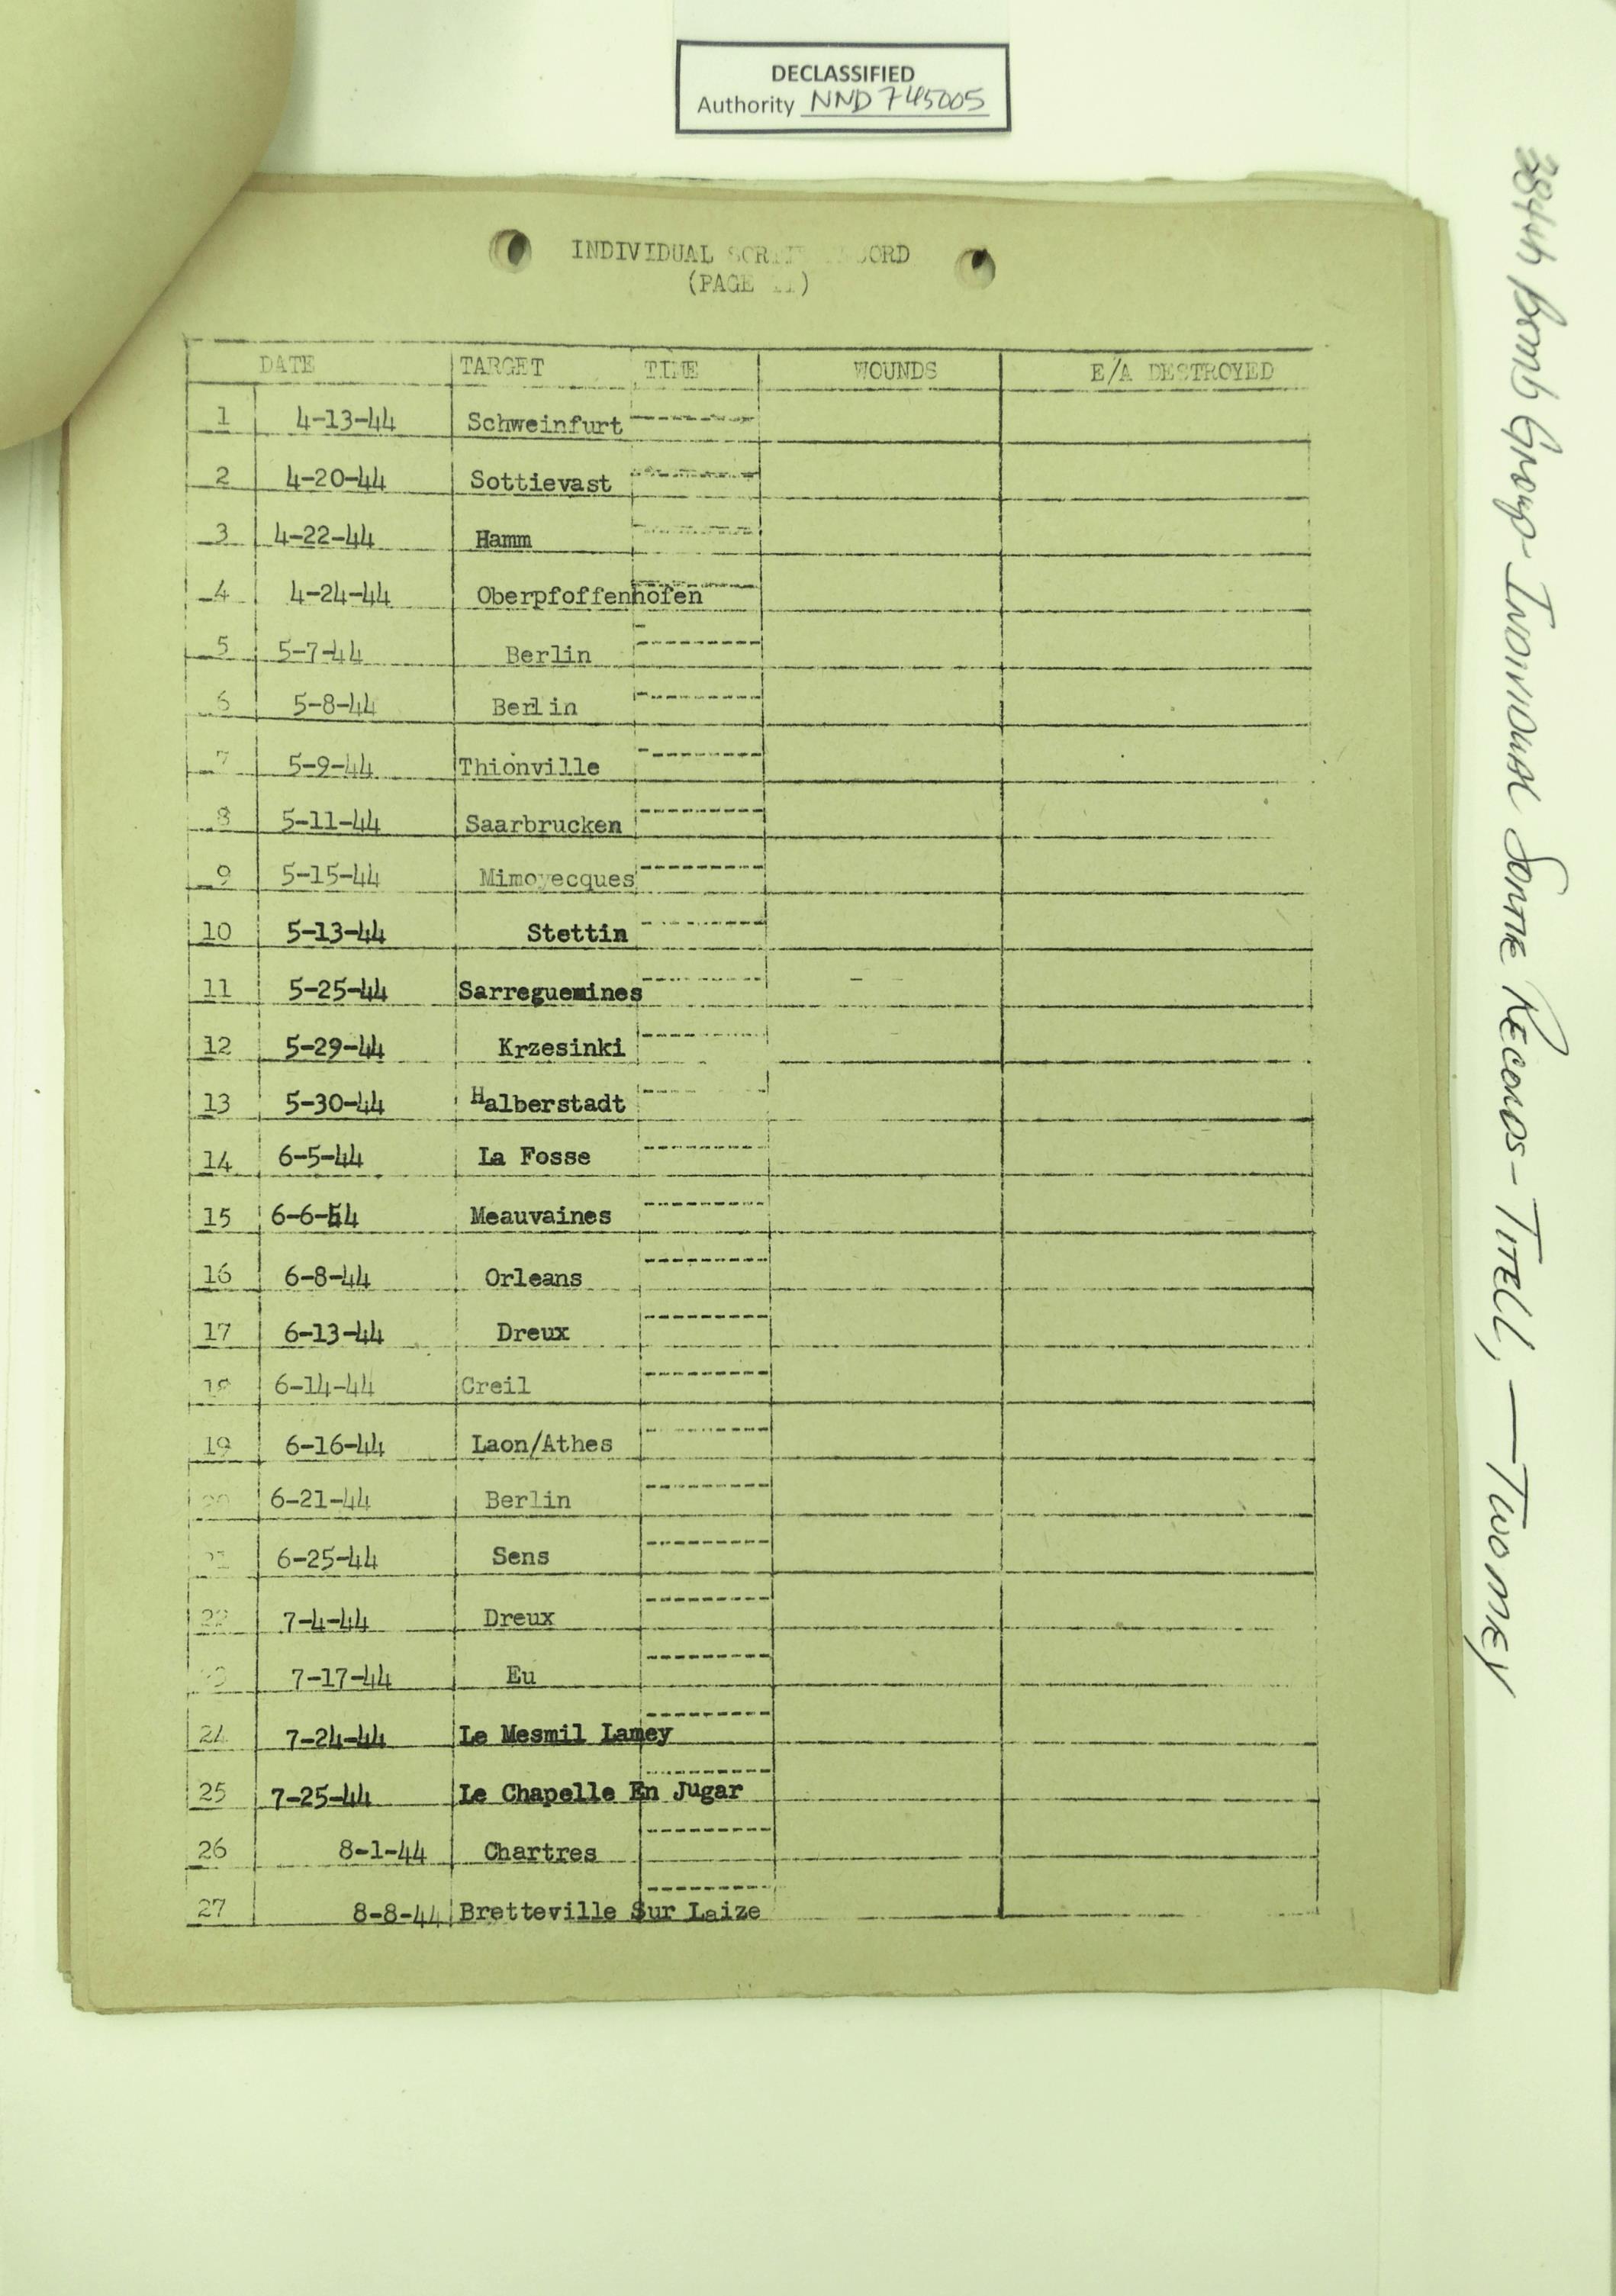 DECLASSIFIED
Authority NND 745005
INDIVIDUAL
(PAGE
DATE TARGET TIME WOUNDS E/A DESTROYED
1 4-13-44 Schweinfurt
2 4-20-44 Sottievast
3 4-22-44 Hamm
4 4-24-44 Oberpfoffenhofen
5 5-7-44 Berlin
6 5-8-44 Berlin
7 5-9-44 Thionville
8 5-11-44 Saarbrucken
9 5-15-44 Mimoyecques
10 5-13-44 Stettin
11 5-25-44 Sarreguemines
12 5-29-44 Krzesinki
13 5-30-44 Halberstadt
14 6-5-44 La Fosse
15 6-6-44 Meauvaines
16 6-8-44 Orleans
17 6-13-44 Dreux
18 6-14-44 Creil
19 6-16-44 Laon/Athes
20 6-21-44 Berlin
21 6-25-44 Sens
22 7-4-44 Dreux
7-17-44 Eu
24 7-24-44 Le Mesmil Lamey
25 7-25-44 Le Chapelle En Jugar
26 8-1-44 Chartres
27 8-8-44 Bretteville Sur Laize
384th Bomb Group - Individual Sortie Records - Titell, — Twomey